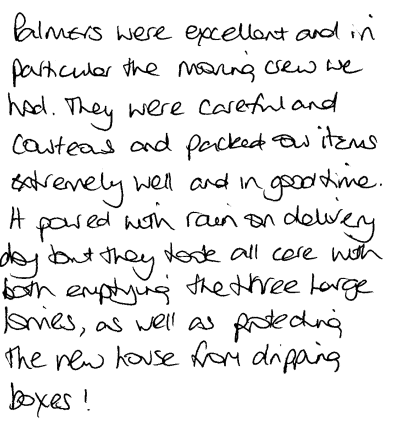 Palmers were excellent and in
particular the moving crew we
had. They were careful and
courteous and packed our items
extremely well and in good time.
It poured with rain on delivery
day but they took all care with
both emptying the three large
lorries, as well as protecting
the new house from dripping
boxes!